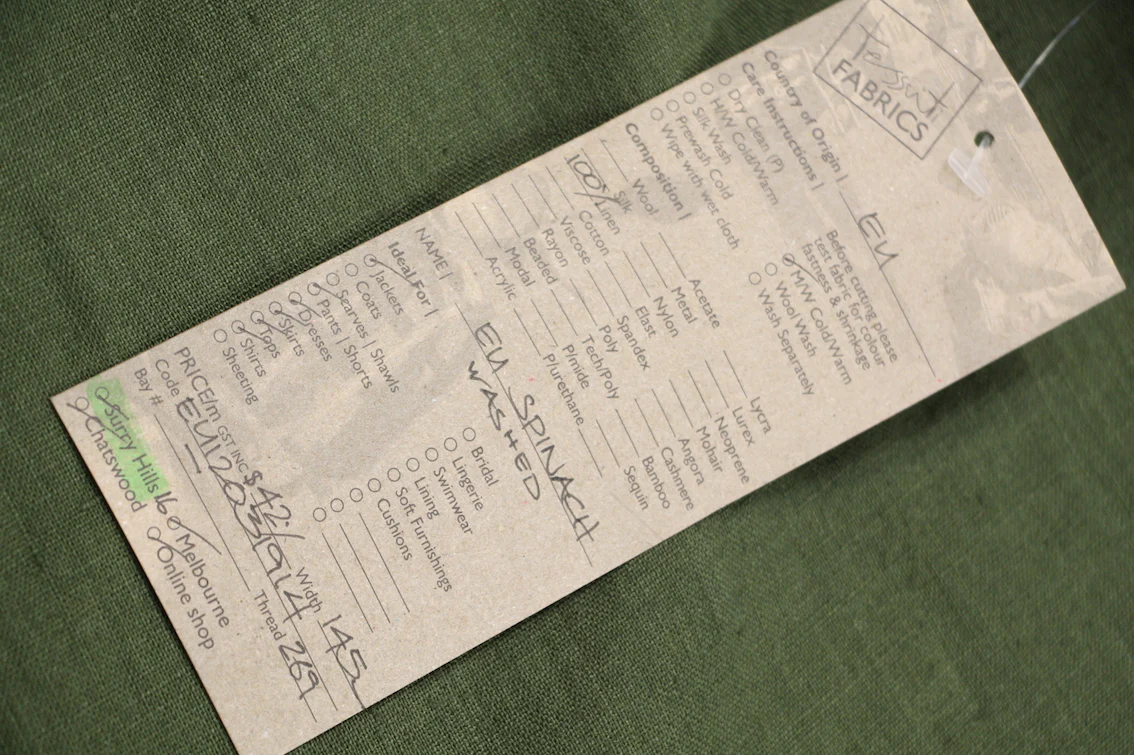 Tessuti
FABRICS
Country of Origin | EU
Care Instructions |
Before cutting please
test fabric for colour
fastness & shrinkage
Dry Clean (P)
H/W Cold/Warm
Silk Wash
Prewash Cold
Wipe with wet cloth
M/W Cold/Warm
Wool Wash
Wash Separately
Composition |
Wool
Silk
100% Linen
Cotton
Viscose
Rayon
Beaded
Modal
Acrylic
Acetate
Metal
Nylon
Elast
Spandex
Poly
Tech/Poly
P/mide
P/urethane
Lycra
Lurex
Neoprene
Mohair
Angora
Cashmere
Bamboo
Sequin
NAME | EU SPINACH
WASHED
Ideal For |
Jackets
Coats
Scarves | Shawls
Pants | Shorts
Dresses
Skirts
Tops
Shirts
Sheeting
Bridal
Lingerie
Swimwear
Lining
Soft Furnishings
Cushions
PRICE/m GST INC $42/ Width 145
Code EU1203/914 Thread 269
Bay #
Surry Hills 16 Melbourne
Chatswood Online shop